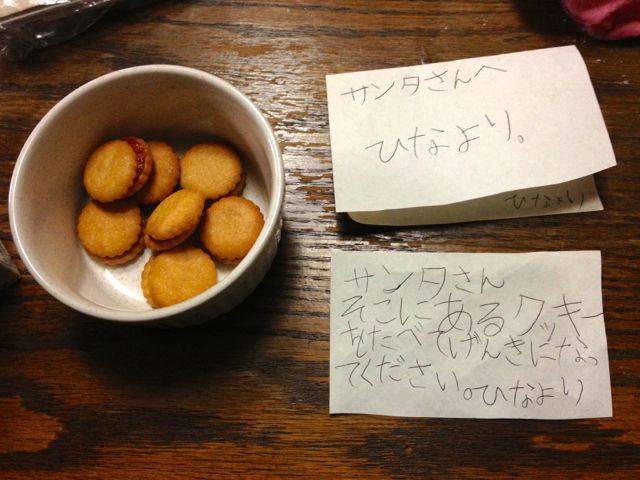 サンタさんへ
ひなより。
ひなより
サンタさん
そこにあるクッキー
をたべてげんきになっ
てください。ひなより